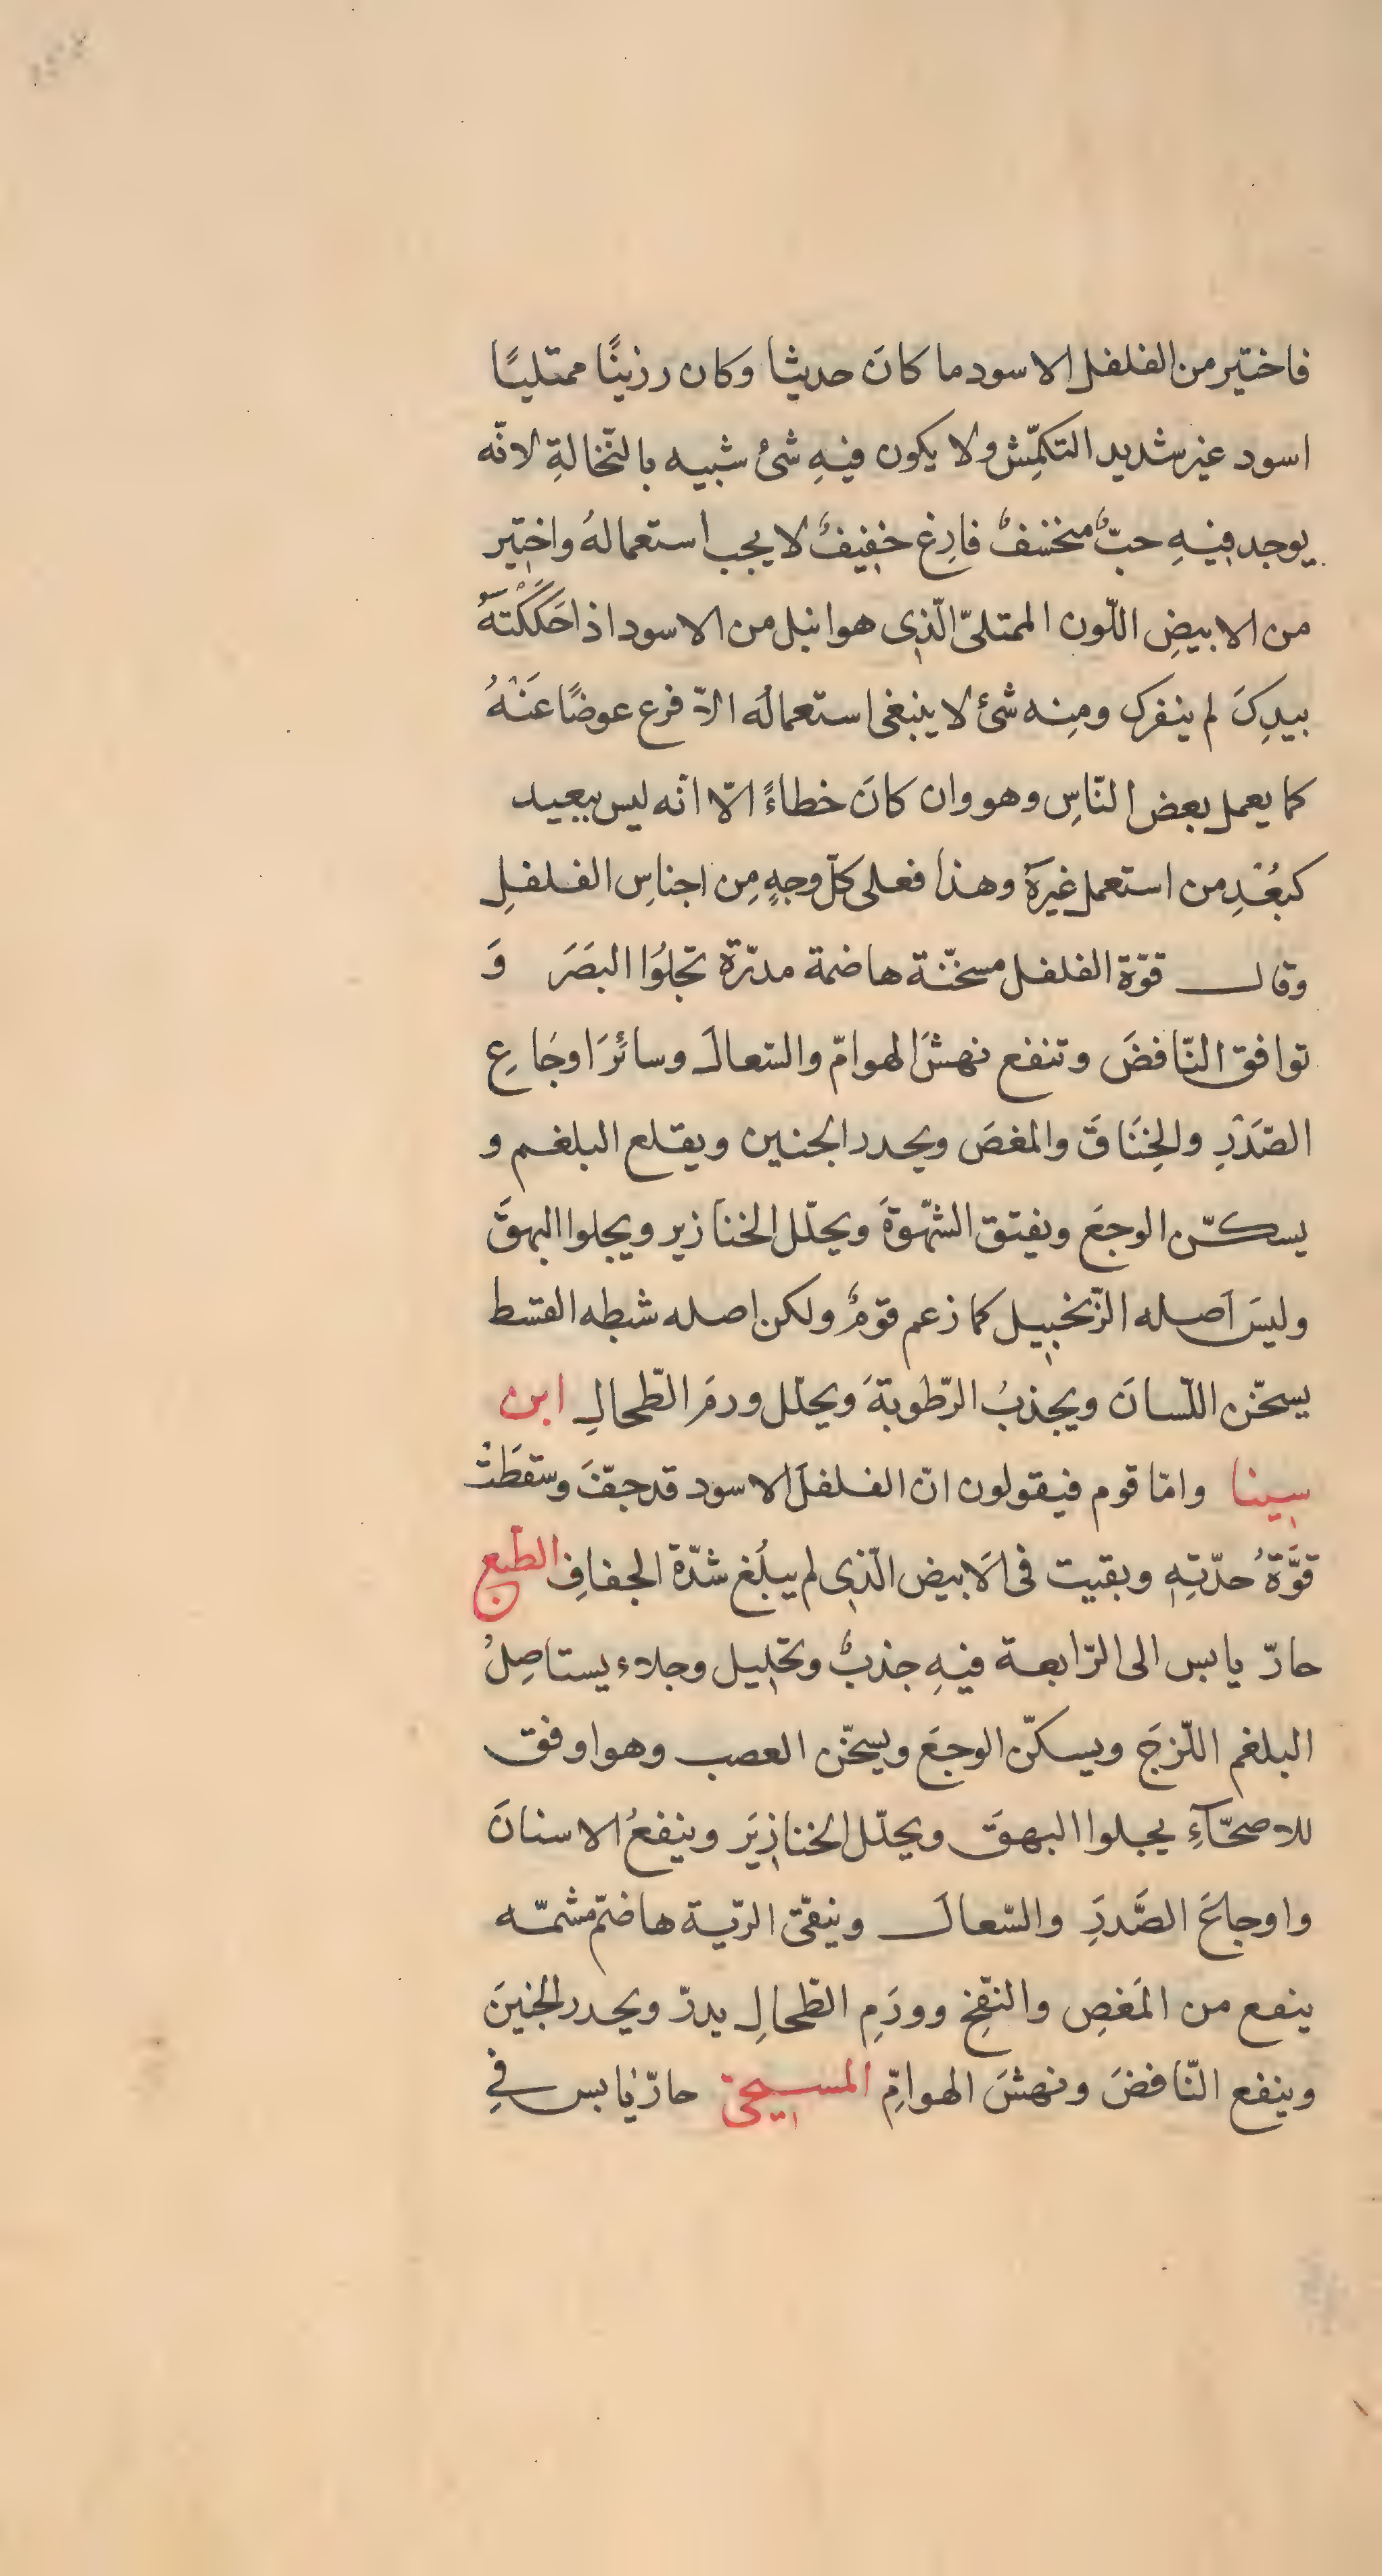 فاختير من الفلفل الاسود ما كانَ حديثا وكان رزينًا ممتليًا
اسود غير شديد التكمّش ولا يكون فيهِ شئ شبيه بالنّخالةِ لانّه
يوجد فيهِ حبٌّ منخسفٌ فارِغ خفيفٌ لا يجب استعمالهُ واختير
من الابيضِ اللّون الممتلىّ الّذى هو انبل من الاسود اذا حَكَكْتَهُ
بيدِكَ لم ينفرك ومِنه شئ لا ينبغى استعمالُه الاّ فرع عوضًا عَنْهُ
كما يعمل بعض النّاسِ وهو وان كانَ خطاءً الّا انّه ليس ببعيد
كبُعْدِ من استعمل غيرَهُ وهذا فعلى كلّ وجهٍ مِن اجناسِ الفلفلِ
وقال قوّة الفلفل مسخّنة هاضمة مدرّة تجلوُا البصَرَ وَ
توافق النّافضَ وتنفع نهشَ الهوامّ والسّعالَ وسائرَ اوجَاعِ
الصّدْرِ والخِنَاقَ والمغصَ ويحدر الجنين ويقلع البلغم و
يسكّن الوجعَ ويفتق الشّهْوةَ ويحلّل الخنازير ويجلوا البهقَ
وليسَ اَصله الزّنجبيل كما زعم قوْمٌ ولكن اصله شبطه القسط
يسخّن اللّسانَ ويجذبُ الرّطوبةَ ويحلّل ورمَ الطّحالِ ابن
سينا وامّا قوم فيقولون انّ الفلفلَ الاسود قد جفّ وسقطَتْ
قوَّةُ حدّتِهِ وبقيت فى الَابيض الّذى لم يبلُغ شدّة الجفافِ الطّبع
حارّ يابس الى الرّابعة فيهِ جذبٌ وتحليل وجلاء يستاصِلُ
البلغم اللّزجَ ويسكّن الوجعَ ويسخّن العصب وهو اوفق
للاصحّآءِ يجلوا البهقَ ويحلّل الخنازيَر وينفعُ الاسنانَ
واوجاعَ الصَّدرِ والسّعالَ وينقّى الرّية هاضم مشمّه
ينفع من المَغصِ والنّفخِ وورَمِ الطّحالِ يدرّ ويحدر الجنينَ
وينفع النّافضَ ونهشَ الهوامِّ المسيحىّ حارّ يابس فِى